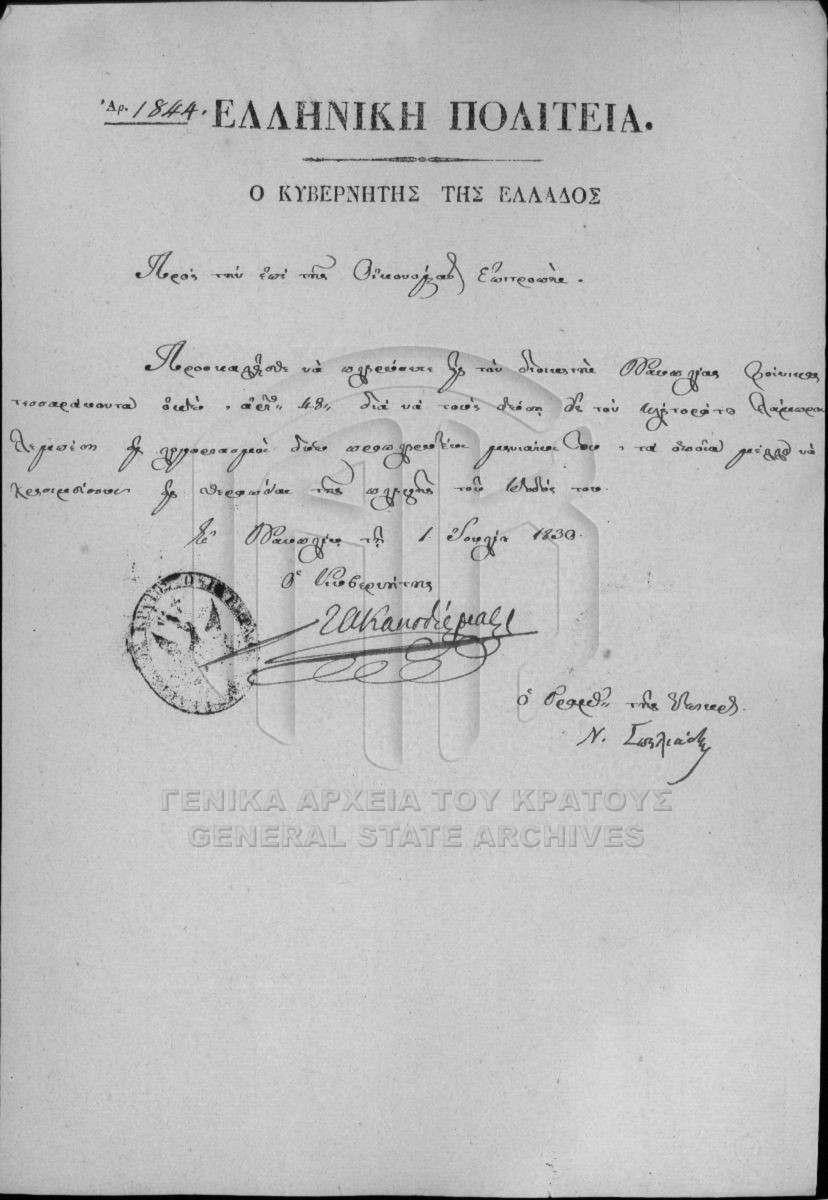 Ἀρ. 1844. ΕΛΛΗΝΙΚΗ ΠΟΛΙΤΕΙΑ.
Ο ΚΥΒΕΡΝΗΤΗΣ ΤΗΣ ΕΛΛΑΔΟΣ
Πρὸς τὴν ἐπὶ τῆς Οἰκονομίας Ἐπιτροπήν.
Προσκαλεῖσθε νὰ πληρώσετε εἰς τὸν διοικητὴν Ναυπλίας φοίνικας
τεσσαράκοντα ὀκτὼ, ἀριθ. 48, διὰ νὰ τοὺς δώσῃ εἰς τὸν
εἰς λογαριασμὸν δύο μηνιαίων του, τὰ ὁποῖα μέλλει νὰ
χρησιμεύσουν εἰς θεραπείαν τῆς πληγῆς τοῦ του.
Ἐν Ναυπλίῳ τῇ 1 Ἰουλίου 1830
Ὁ Κυβερνήτης
ΙΑ Καποδίστριας
ὁ Γραμμ. τῆς Ἐπικρ.
Ν. Σπηλιάδης
ΓΕΝΙΚΑ ΑΡΧΕΙΑ ΤΟΥ ΚΡΑΤΟΥΣ
GENERAL STATE ARCHIVES